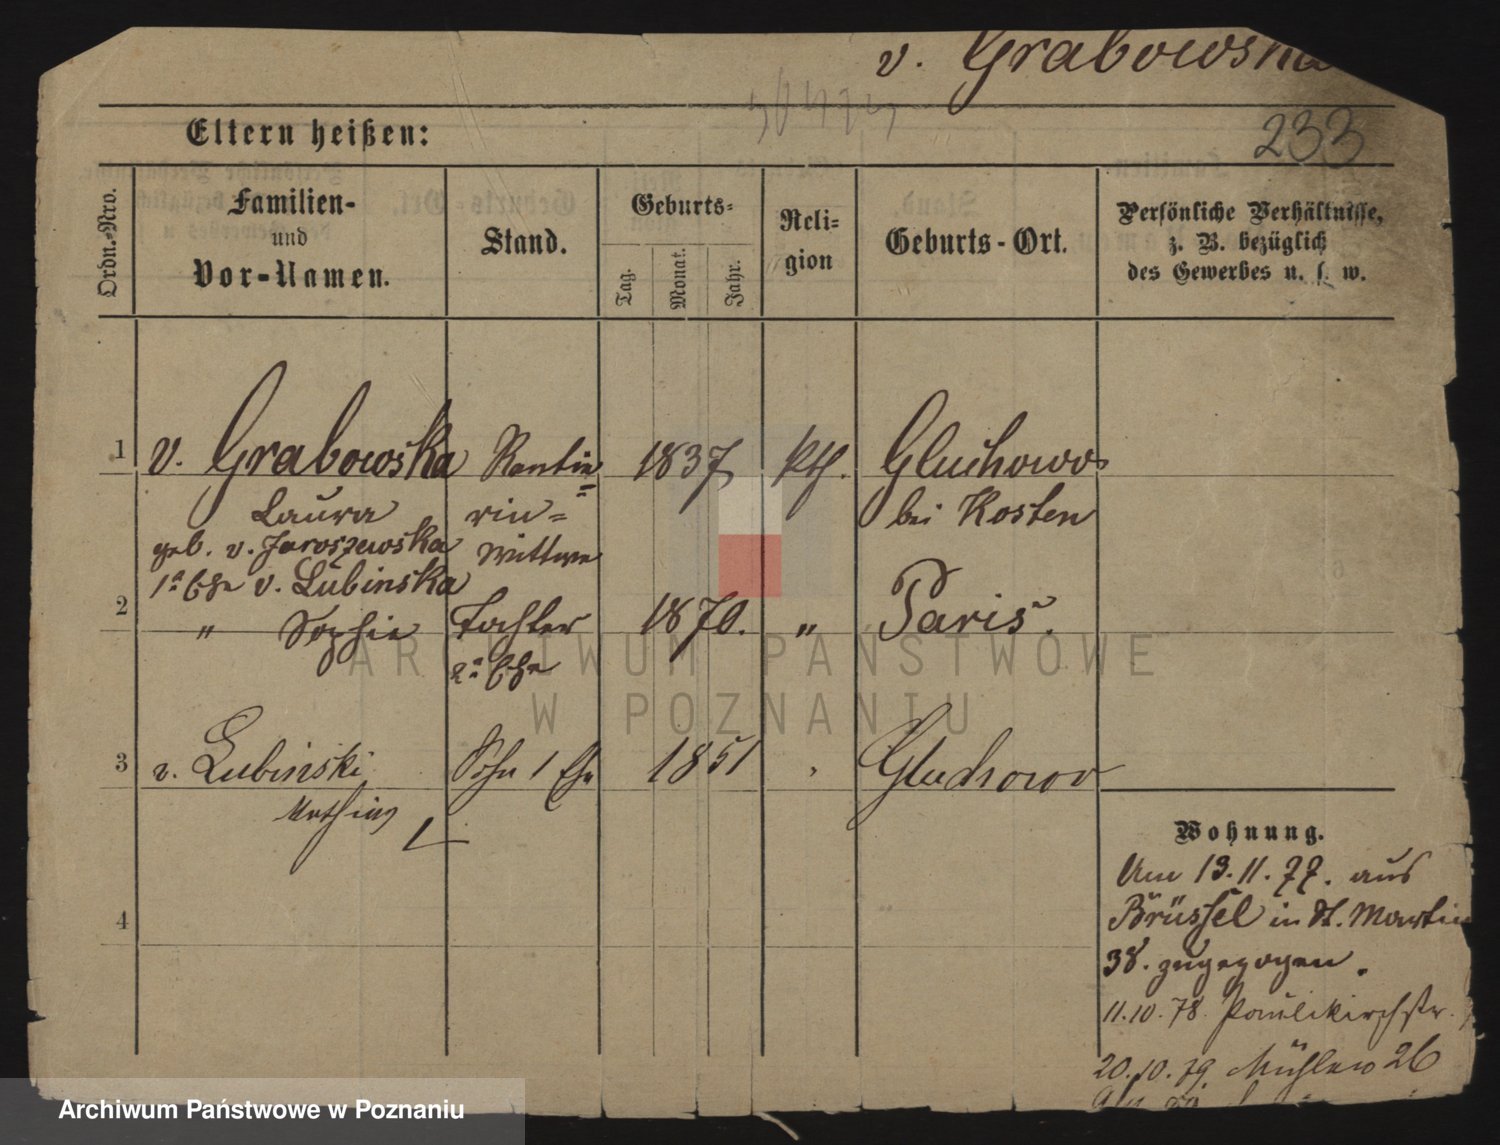 v. Grabowska
233
Eltern heißen:
Ordn.-Nro.
Familien-
und
Vor-Namen.
Stand.
Geburts-
Tag.
Monat.
Jahr.
Reli-
gion
Geburts-Ort.
Persönliche Verhältnisse,
z. B. bezüglich
des Gewerbes u. s. w.
1 v. Grabowska Rentie= 1837 kth. Gluchowo
Laura rin= bei Kosten
geb. v. Jaroszewska Wittwe
1te Ehe v. Lubinska
2 " Sophie Tochter 1870. " Paris.
2te Ehe
3 v. Lubinski Sohn 1 Ehe 1851 Gluchowo
4
Wohnung.
Am 13.11.77. aus
Brüssel in St. Martin
38. zugezogen.
11.10.78. Paulikirchstr.
20.10.79. Mühlen 26
ARCHIWUM PAŃSTWOWE
W POZNANIU
Archiwum Państwowe w Poznaniu